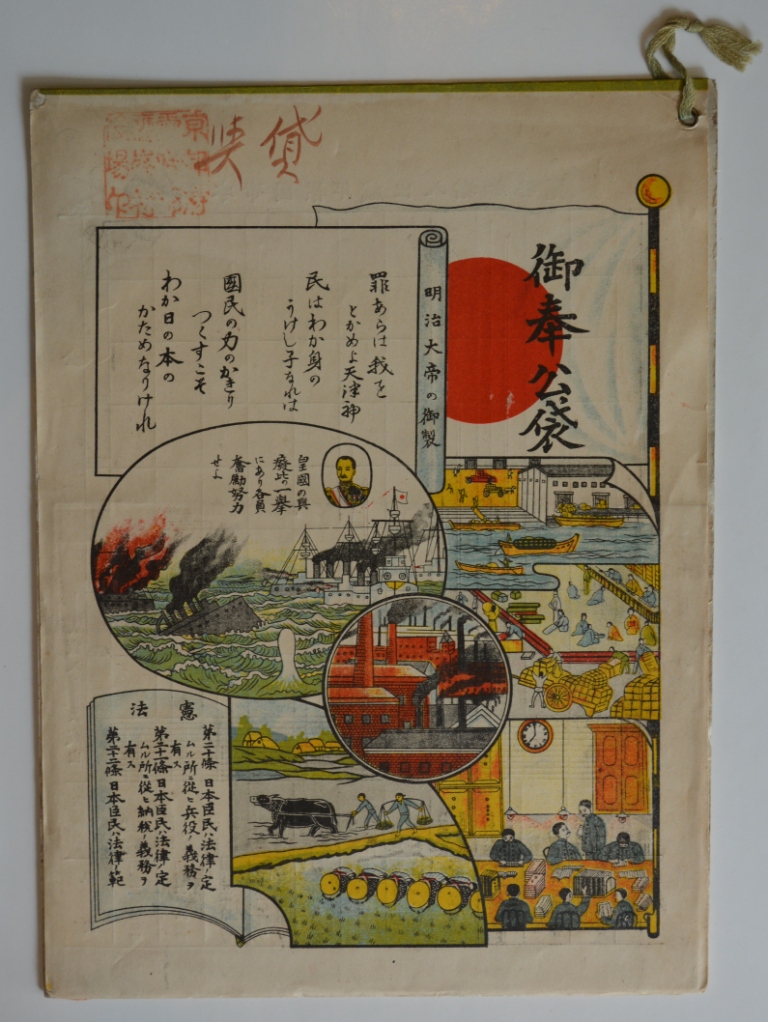 貸
御奉公袋
明治大帝の御製
罪あらは我を
とかめよ天津神
民はわか身の
うけし子なれは
國民の力のかきり
つくすこそ
わか日の本の
かためなりけれ
皇國の興
廢此一擧
にあり各員
奮勵努力
せよ
憲法
第二十條日本臣民ハ法律ノ定
ムル所ニ從ヒ兵役ノ義務ヲ
有ス
第二十一條日本臣民ハ法律ノ定
ムル所ニ從ヒ納税ノ義務ヲ
有ス
第二十二條日本臣民ハ法律ノ範